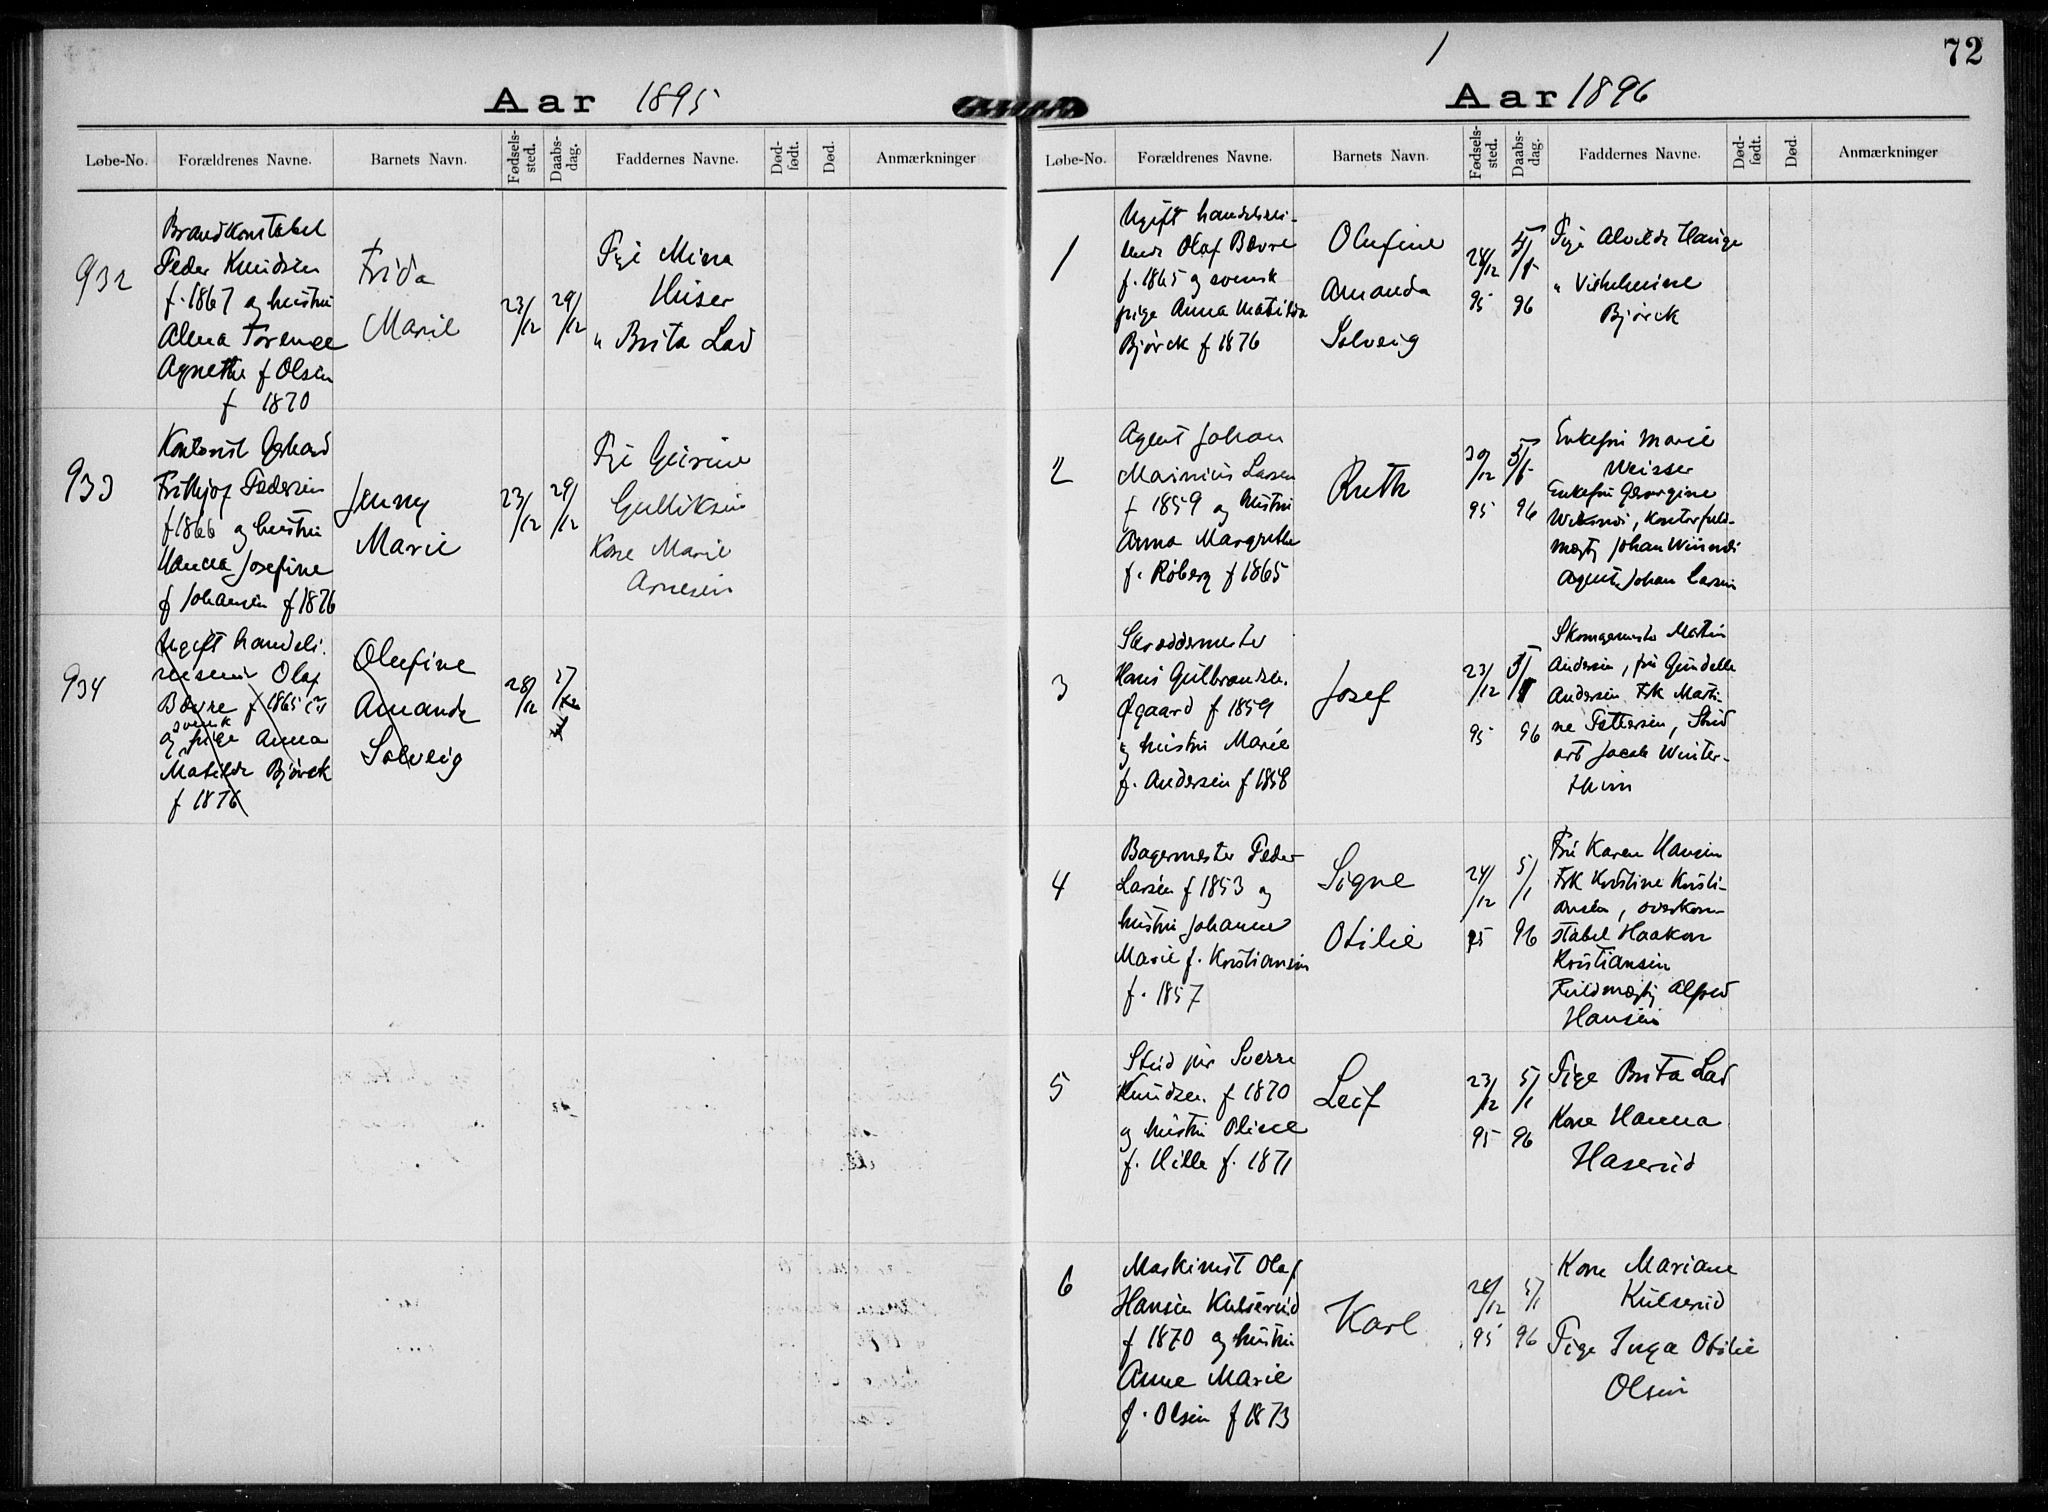 Aar 1895
Løbe-No. Forældrenes Navne. Barnets Navn. Fødsels-sted. Daabs-dag. Faddernes Navne. Død-født. Død. Anmærkninger
932
Brandkonstabel
Peder Knudsen
f. 1867 og hustru
Alma Torence
Agnethe f Olsen
f 1870
Frida
Marie
23/12
29/12
Pige Mina
Huser
" Brita Lad
933
Kontorist Gerhard
Frithjof Pedersen
f 1866 og hustru
Hanna Josefine
f Johansen f 1876
Jenny
Marie
23/12
29/12
Pige Gurine
Gulliksen
Kone Marie
Arnesen
934
Ugift handels-
reisende Olaf
Bovre f 1865
og svensk pige Anna
Matilda Bjørck
f 1876
Olufine
Amanda
Solveig
28/12
1
72
Aar 1896
Løbe-No. Forældrenes Navne. Barnets Navn. Fødsels-sted. Daabs-dag. Faddernes Navne. Død-født. Død. Anmærkninger
1
Ugift handelsrei-
sende Olaf Bovre
f. 1865 og svensk
pige Anna Matilda
Bjørck f 1876
Olufine
Amanda
Solveig
28/12 95
5/1 96
Pige Alvilde Hauge
" Vilhelmine
Bjørck
2
Agent Johan
Marinius Larsen
f 1859 og hustru
Anna Margrethe
f. Roberg f 1865
Ruth
30/12 95
5/1 96
Enkefru Marie
Weisser
Enkefru Georgine
kontorfuld-
mægtig Johan
Agent Johan Larsen
3
Skræddermester
Hans Gulbrandsen
Øgaard f 1859
og hustru Marie
f. Andersen f 1858
Josef
23/12 95
5/1 96
Skomagermester Martin
Andersen, fru Gundelle
Andersen Frk Marti-
ne Pettersen, Stud
art Jacob Winter-
thun
4
Bagermester Peder
Larsen f 1853 og
hustru Johanne
Marie f. Kristiansen
f. 1857
Signe
Otilie
24/12 95
5/1 96
Fru Karen Hansen
Frk Kristine Kristi-
ansen, overkon-
stabel Haakon
Kristiansen
Fuldmægtig Alfred
Hansen
5
Stud jur Sverre
Knudsen f 1870
og hustru Oline
f. Hille f. 1871
Leif
23/12 95
5/1 96
Pige Brita Lad
Kone Hanna
Haserud
6
Maskinist Olaf
Hansen Kulserud
f 1870 og hustru
Anne Marie
f. Olsen f 1873
Karl
28/12 95
5/1 96
Kone Mariane
Kulserud
Pige Inga Otilie
Olsen